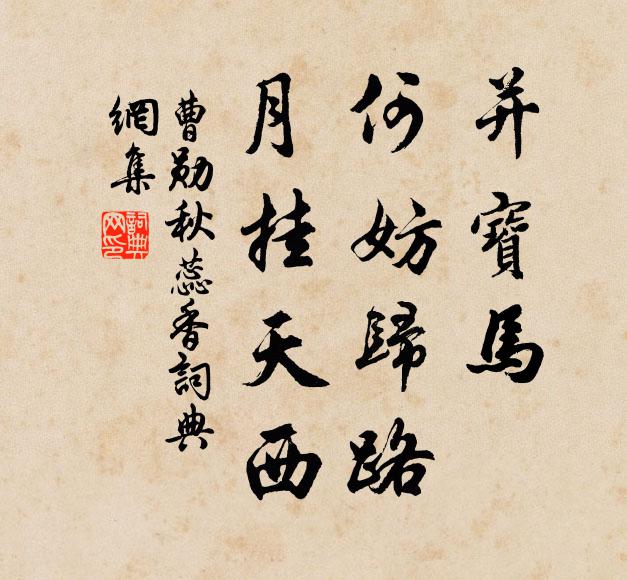 并寶馬
何妨歸路
月挂天西
曹勛秋蕊香詞典
網集
詞典
网印